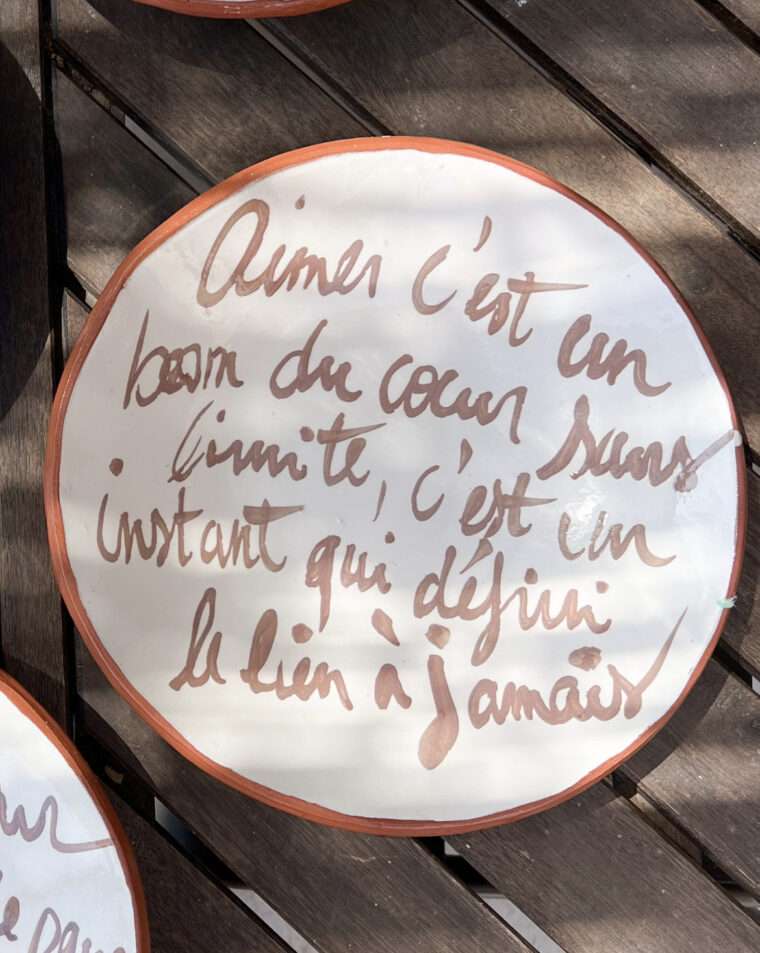 Aimer c'est un
besoin du coeur sans
limite, c'est un
instant qui défini
le lien à jamais